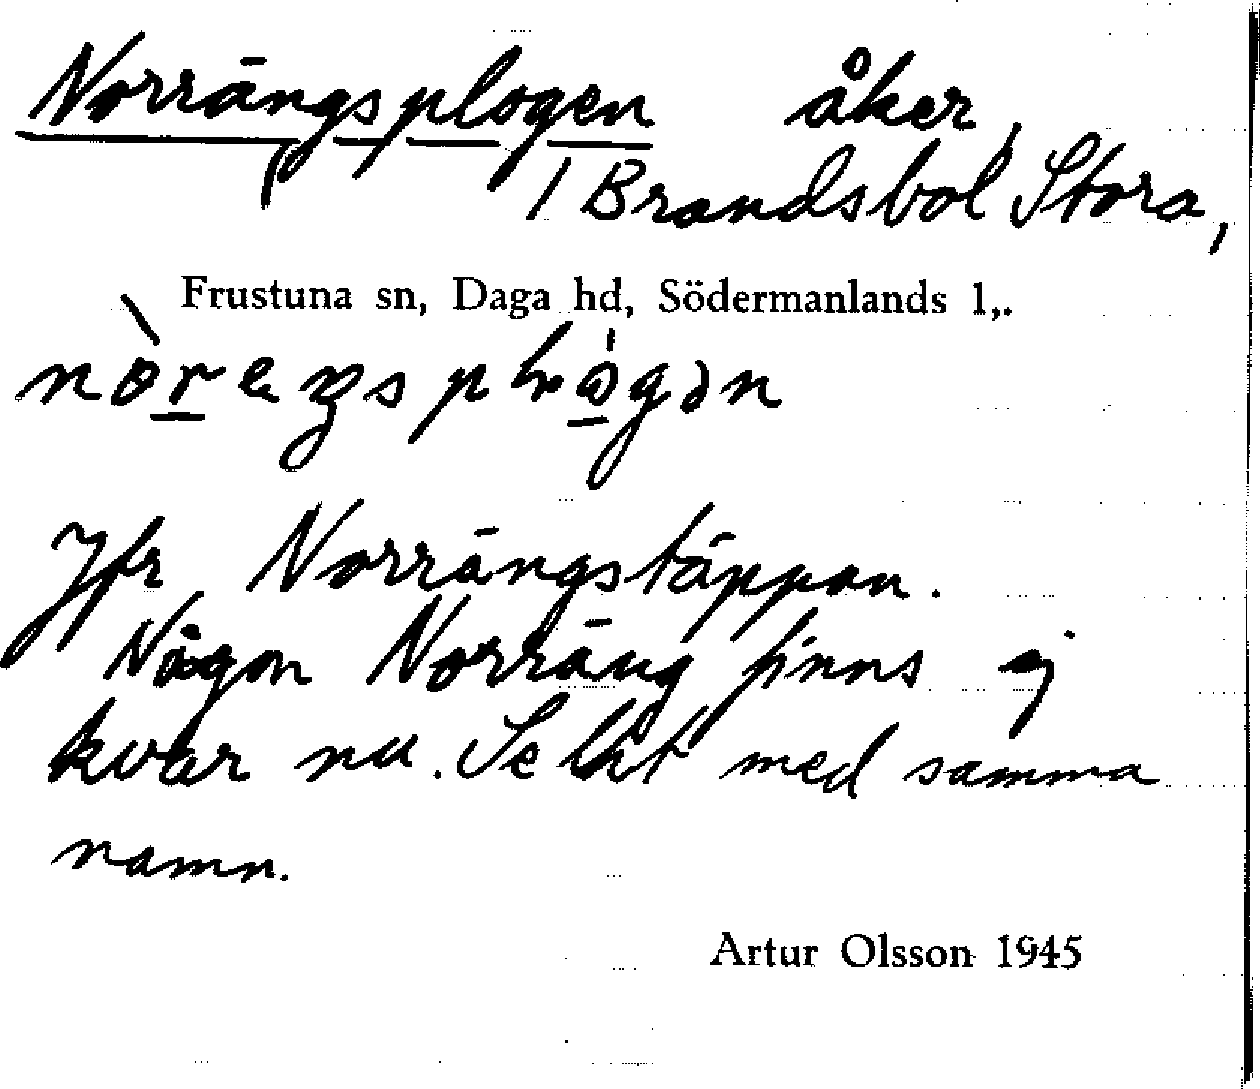 Norrängsplogen åker,
/ Brandsbol Stora,
Frustuna sn, Daga hd, Södermanlands l,.
Jfr Norrängstäppan.
Någon Norräng finns ej
kvar nu. Se likt med samma
namn.
Artur Olsson 1945